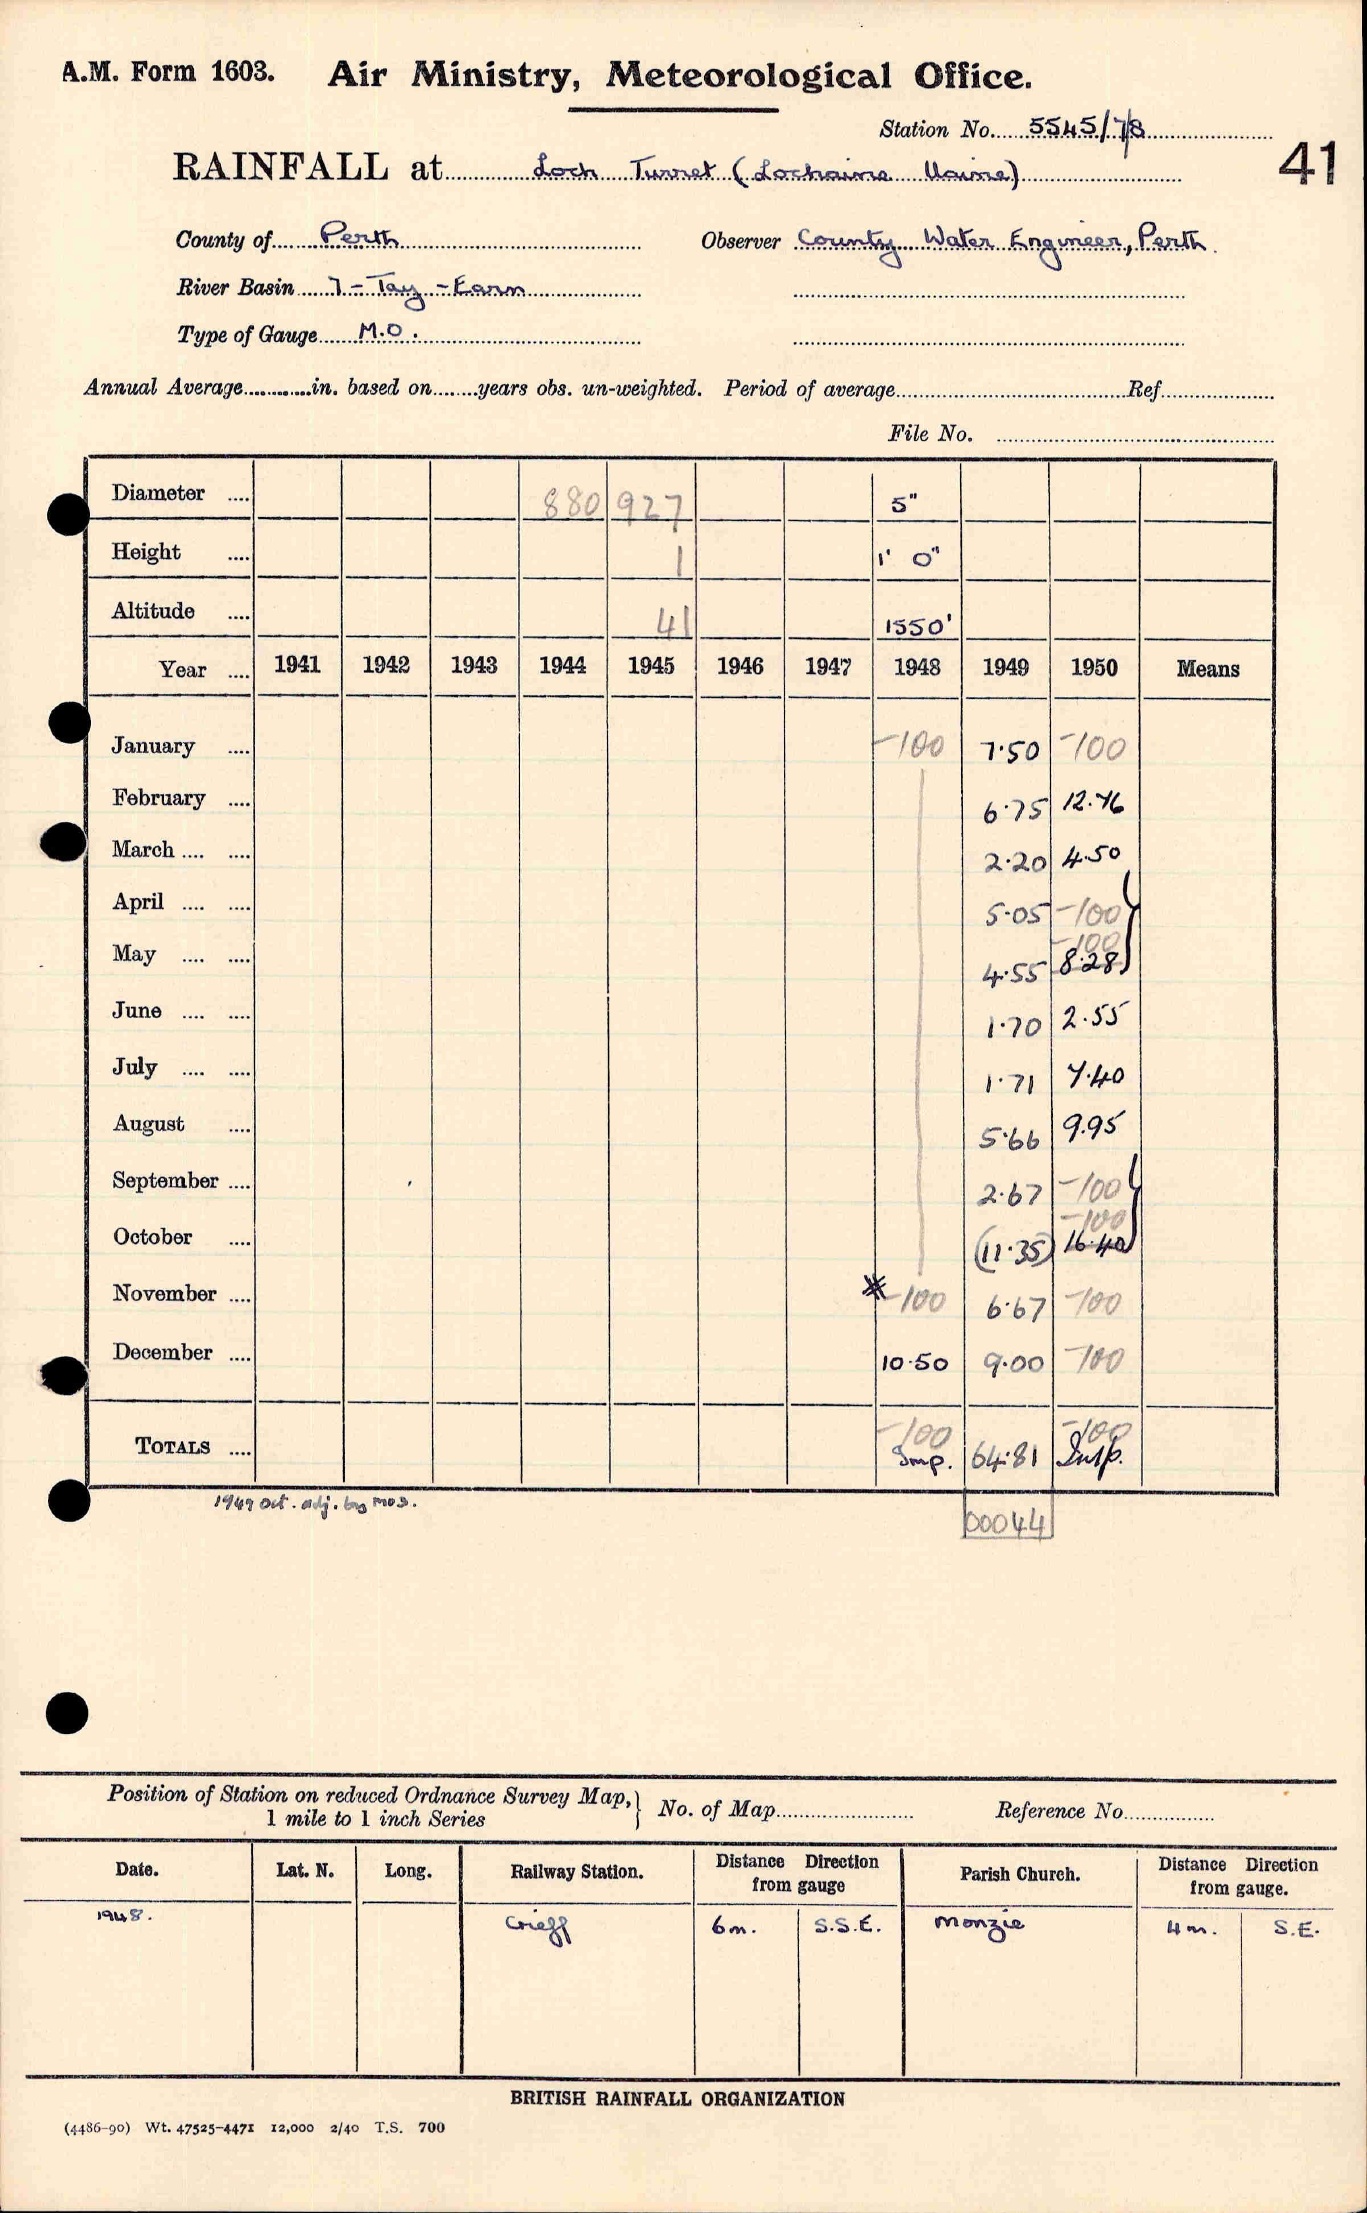 A.M. Form 1603. Air Ministry, Meteorological Office.
Station No. 5545/78
41
RAINFALL at Loch Turret (Lochaine Uaine)
County of Perth Observer County Water Engineer, Perth.
River Basin 7-Tay-Earn
Type of Gauge M.O.
Annual Average in. based on years obs. un-weighted. Period of average Ref
File No.
Diameter 880 927 5"
Height 1 1' 0"
Altitude 41 1550'
Year 1941 1942 1943 1944 1945 1946 1947 1948 1949 1950 Means
January -100 7.50 -100
February 6.75 12.76
March 2.20 4.50
April 5.05 -100
-100
May 4.55 8.28
June 1.70 2.55
July 1.71 7.40
August 5.66 9.95
September 2.67 -100
-100
October (11.35) 16.40
November * -100 6.67 -100
December 10.50 9.00 -100
-100 -100
TOTALS Imp. 64.81
1949 Oct. adj. by M.O.
00044
Position of Station on reduced Ordnance Survey Map, 1 mile to 1 inch Series } No. of Map Reference No.
Date. Lat. N. Long. Railway Station. Distance Direction from gauge Parish Church. Distance Direction from gauge.
1948. Crieff 6m. S.S.E. Monzie 4m. S.E.
BRITISH RAINFALL ORGANIZATION
(4486-90) Wt. 47525-4471 12,000 2/40 T.S. 700